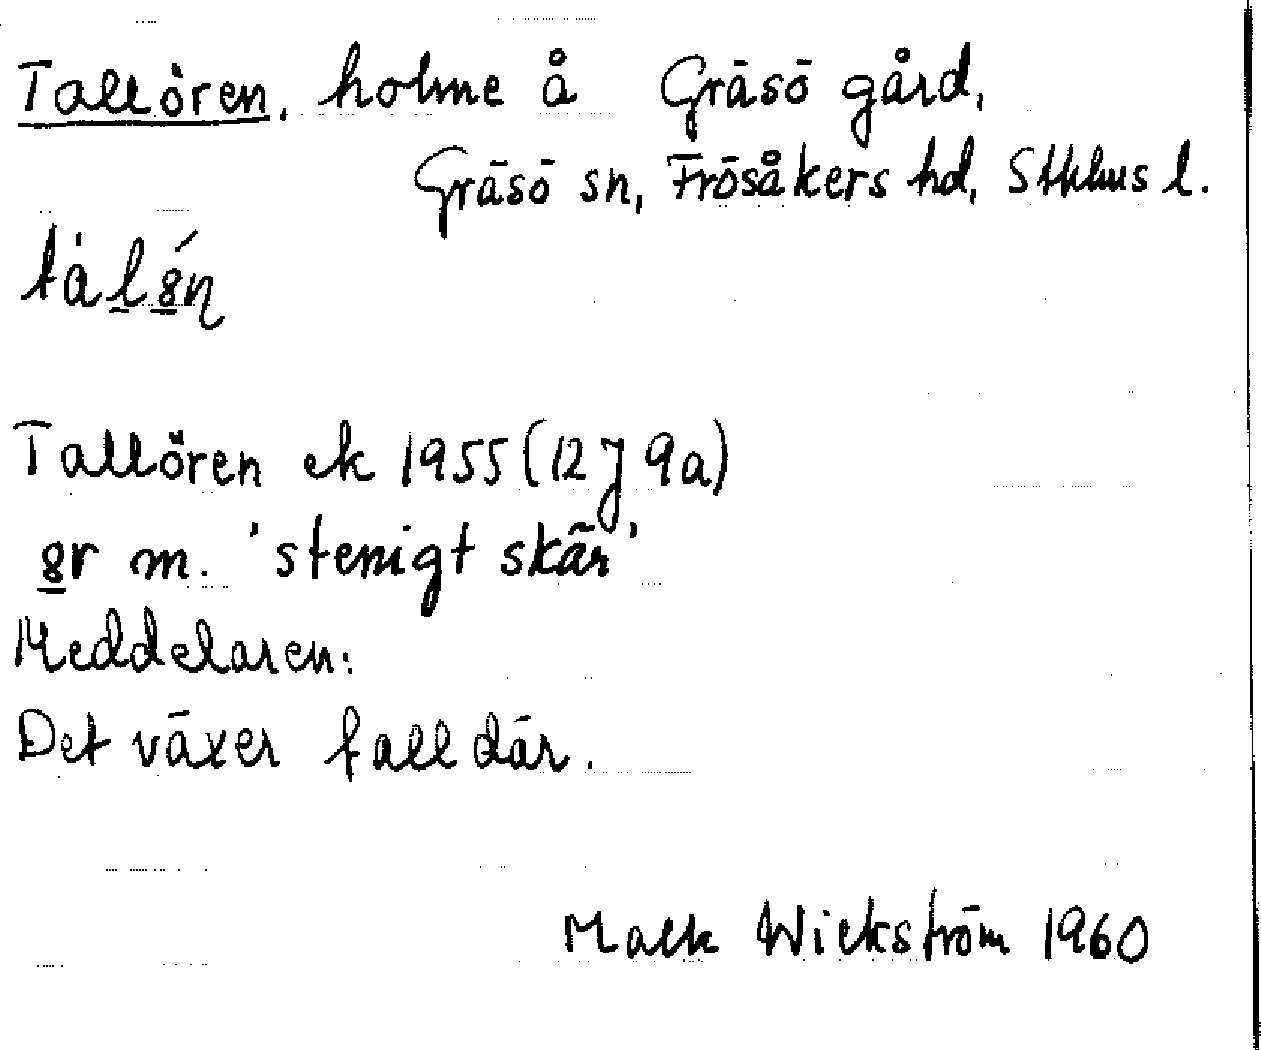 Tallören, holme å Gräsö gård,
Gräsö sn, Frösåkers hd, Sthlms l.
Tallören ek 1955 (12J 9a)
8r m. 'stenigt skär'
Meddelaren:
Det växer tall där.
Wickström 1960